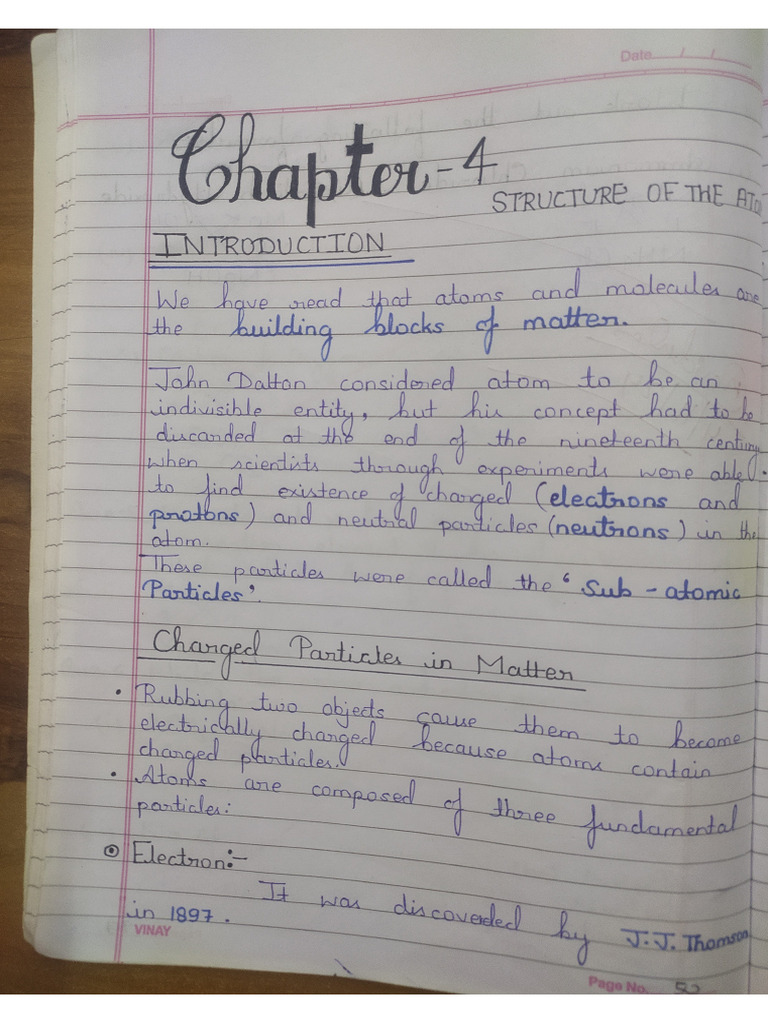 Date / /
Chapter-4
STRUCTURE OF THE ATO
INTRODUCTION
We have read that atoms and molecules are
the building blocks of matter.
John Dalton considered atom to be an
indivisible entity, but his concept had to be
discarded at the end of the nineteenth century
when scientists through experiments were able
to find existence of charged (electrons and
protons) and neutral particles (neutrons) in the
atom.
These particles were called the 'Sub-atomic
Particles'.
Charged Particles in Matter
• Rubbing two objects cause them to become
electrically charged because atoms contain
charged particles.
• Atoms are composed of three fundamental
particles:
Electron:-
It was discoverded by J.J. Thomson
in 1897.
VINAY
Page No. 52